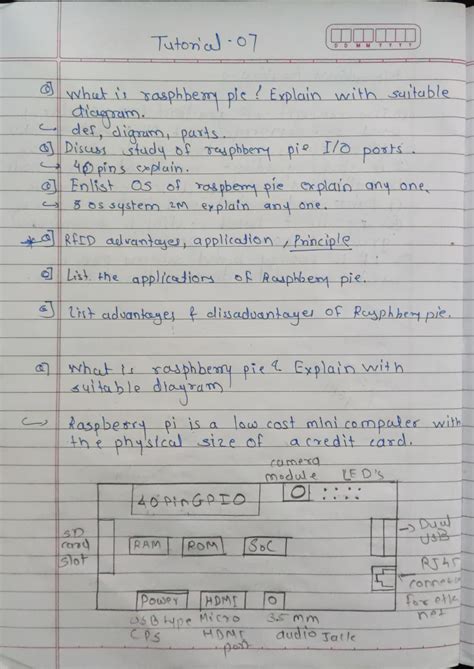 Tutorial-07
D D M M Y Y Y Y
Q) What is raspbberry pie? Explain with suitable
diagram.
def, digram, parts.
Q) Discuss study of raspbberry pie I/O ports.
40 pins explain.
Q) Enlist OS of raspberry pie explain any one.
5 os system 2M explain any one.
Q) RFID advantages, application, Principle
Q) List the applications of Raspbberry pie.
Q) List advantages & dissadvantages of Raspbberry pie.
Q) What is raspbberry pie & Explain with
suitable diagram
Raspberry pi is a low cost mini computer with
the physical size of a credit card.
camera
module
LED's
40 Pin GPIO
SD
card
slot
RAM
ROM
SoC
Dual
USB
RJ45
connector
for ethe
net
Power
HDMI
USB type
CPS
Micro
HDMI
port
3.5 mm
audio Jack